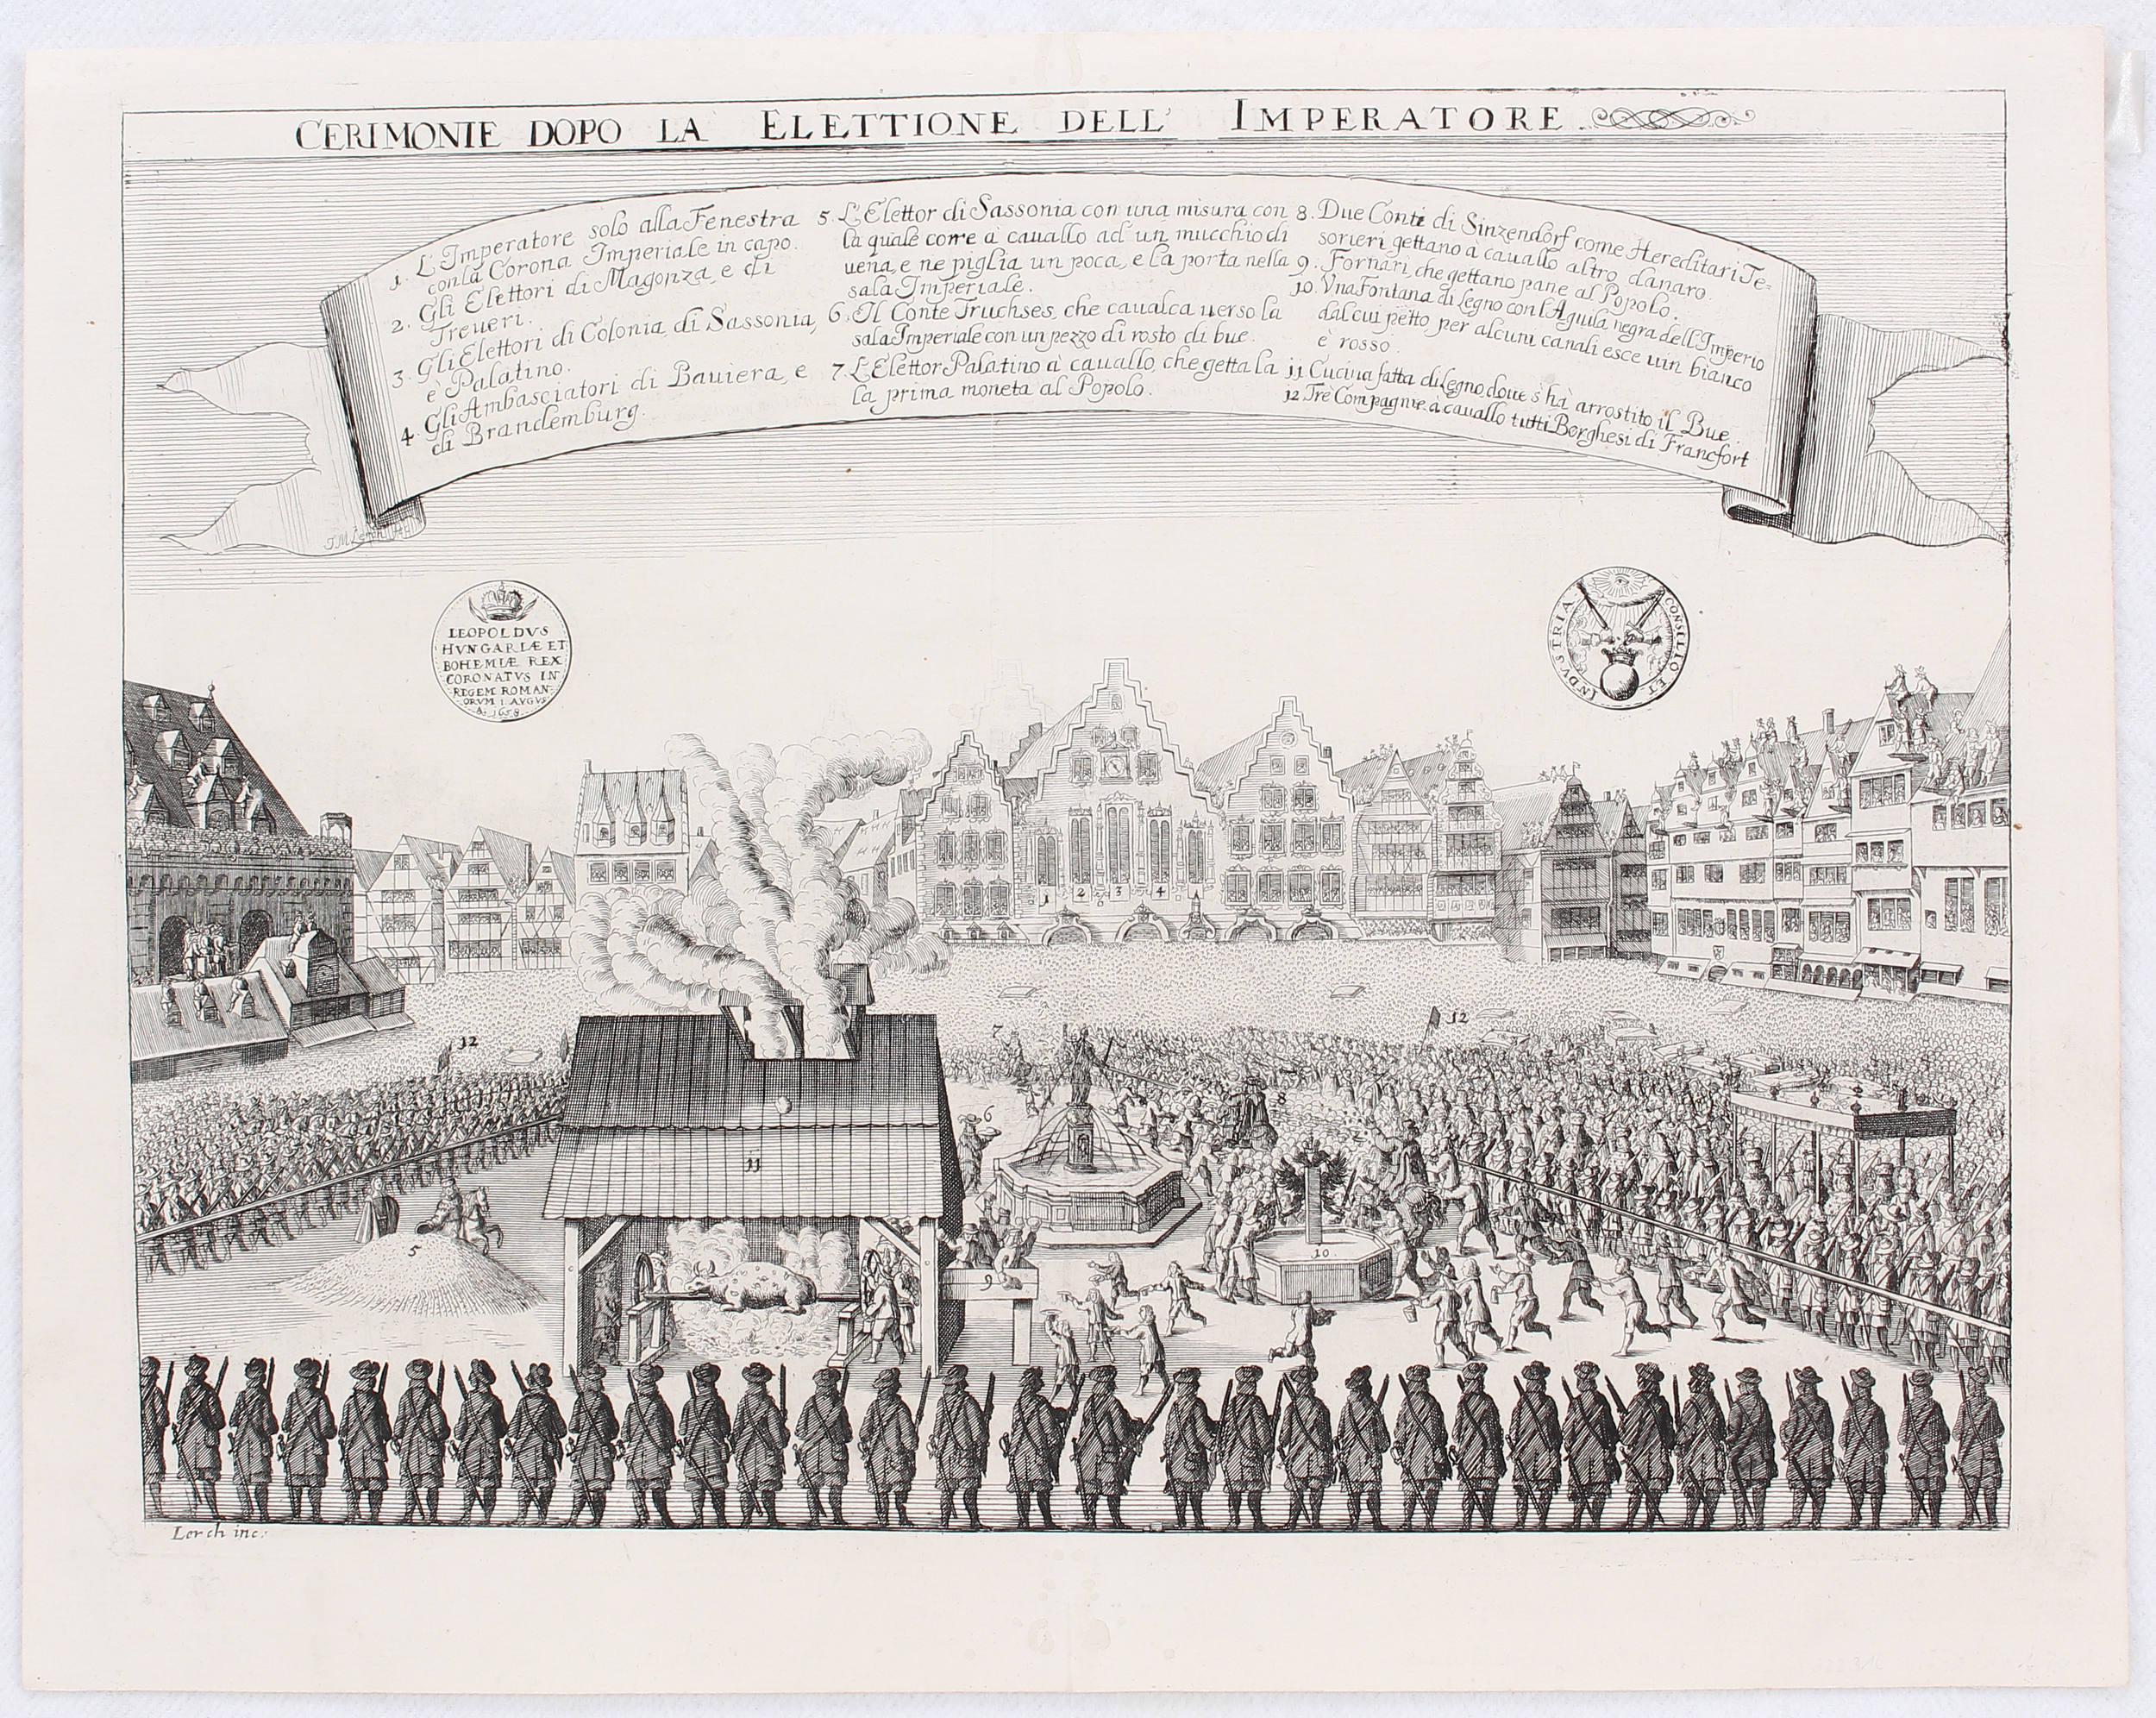 CERIMONIE DOPO LA ELETTIONE DELL' IMPERATORE.
1. L'Imperatore solo alla Fenestra
con la Corona Imperiale in capo.
2. Gli Elettori di Magonza, e di
Treueri.
3. Gli Elettori di Colonia, di Sassonia,
è Palatino.
4. Gli Ambasciatori di Bauiera, e
di Brandemburg.
5. L'Elettor di Sassonia con una misura con
la quale corre à cauallo ad un mucchio di
uena, e ne piglia un poca, e la porta nella
sala Imperiale.
6. Il Conte Truchses, che caualca uerso la
sala Imperiale con un pezzo di rosto di bue.
7. L'Elettor Palatino à cauallo, che getta la
la prima moneta al Popolo.
8. Due Conti di Sinzendorf come Hereditari Te-
sorieri gettano à cauallo altro danaro.
9. Fornari, che gettano pane al Popolo.
10. Vna Fontana di Legno con l'Aguila negra dell'Imperio
dal cui petto per alcuni canali esce uin bianco
è rosso.
11 Cucina fatta di legno, doue s'hà arrostito il Bue.
12. Trè Compagnie à cauallo tutti Borghesi di Francfort
J M Lerch
LEOPOLDVS
HVNGARIÆ ET
BOHEMIÆ REX
CORONATVS IN
REGEM ROMAN
ORVM 1 AVGVS
A. 1658.
CONSILIO ET INDVSTRIA
1 2 3 4
12
7
12
6
8
11
5
10.
9
Lerch inc: